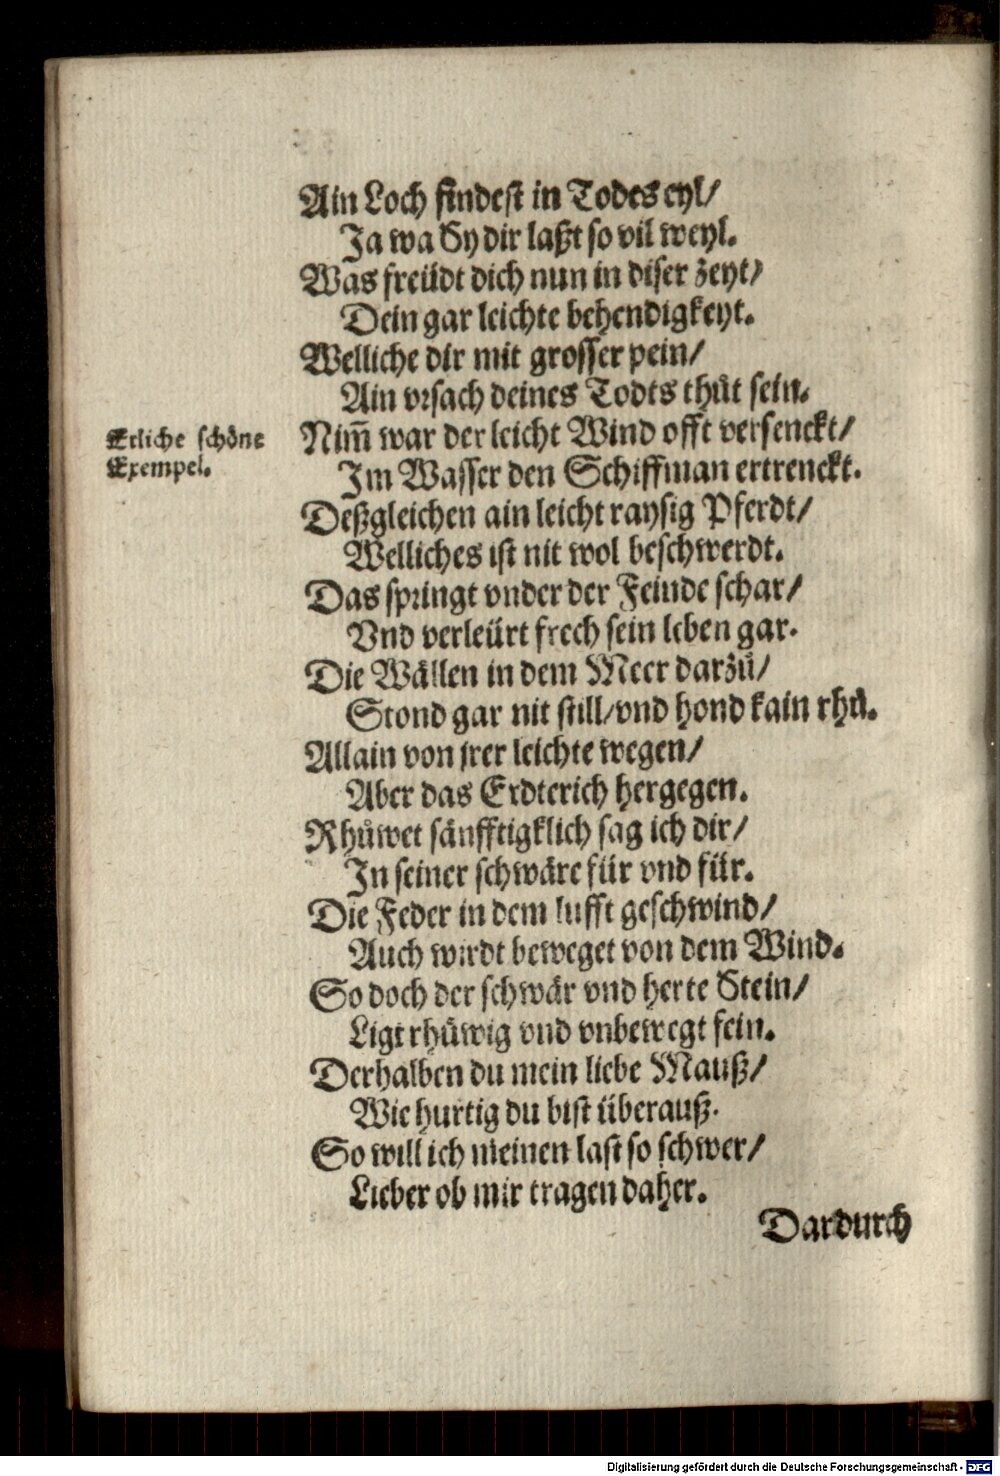 Ain Loch findest in Todes eyl/
Ja wa Sy dir laßt so vil weyl.
Was freüdt dich nun in diser zeyt/
Dein gar leichte behendigkeyt.
Welliche dir mit grosser pein/
Ain vrsach deines Todts thůt sein.
Etliche schöne
Exempel.
Nim̃ war der leicht Wind offt versenckt/
Im Wasser den Schiffman ertrenckt.
Deßgleichen ain leicht raysig Pferdt/
Welliches ist nit wol beschwerdt.
Das springt vnder der Feinde schar/
Vnd verleürt frech sein leben gar.
Die Wällen in dem Meer darzů/
Stond gar nit still/vnd hond kain rhů.
Allain von jrer leichte wegen/
Aber das Erdterich hergegen.
Rhůwet sänfftigklich sag ich dir/
In seiner schwäre für vnd für.
Die Feder in dem lufft geschwind/
Auch wirdt beweget von dem Wind.
So doch der schwär vnd herte Stein/
Ligt rhůwig vnd vnbewegt fein.
Derhalben du mein liebe Mauß/
Wie hurtig du bist überauß.
So will ich meinen last so schwer/
Lieber ob mir tragen daher.
Dardurch
Digitalisierung gefördert durch die Deutsche Forschungsgemeinschaft - DFG